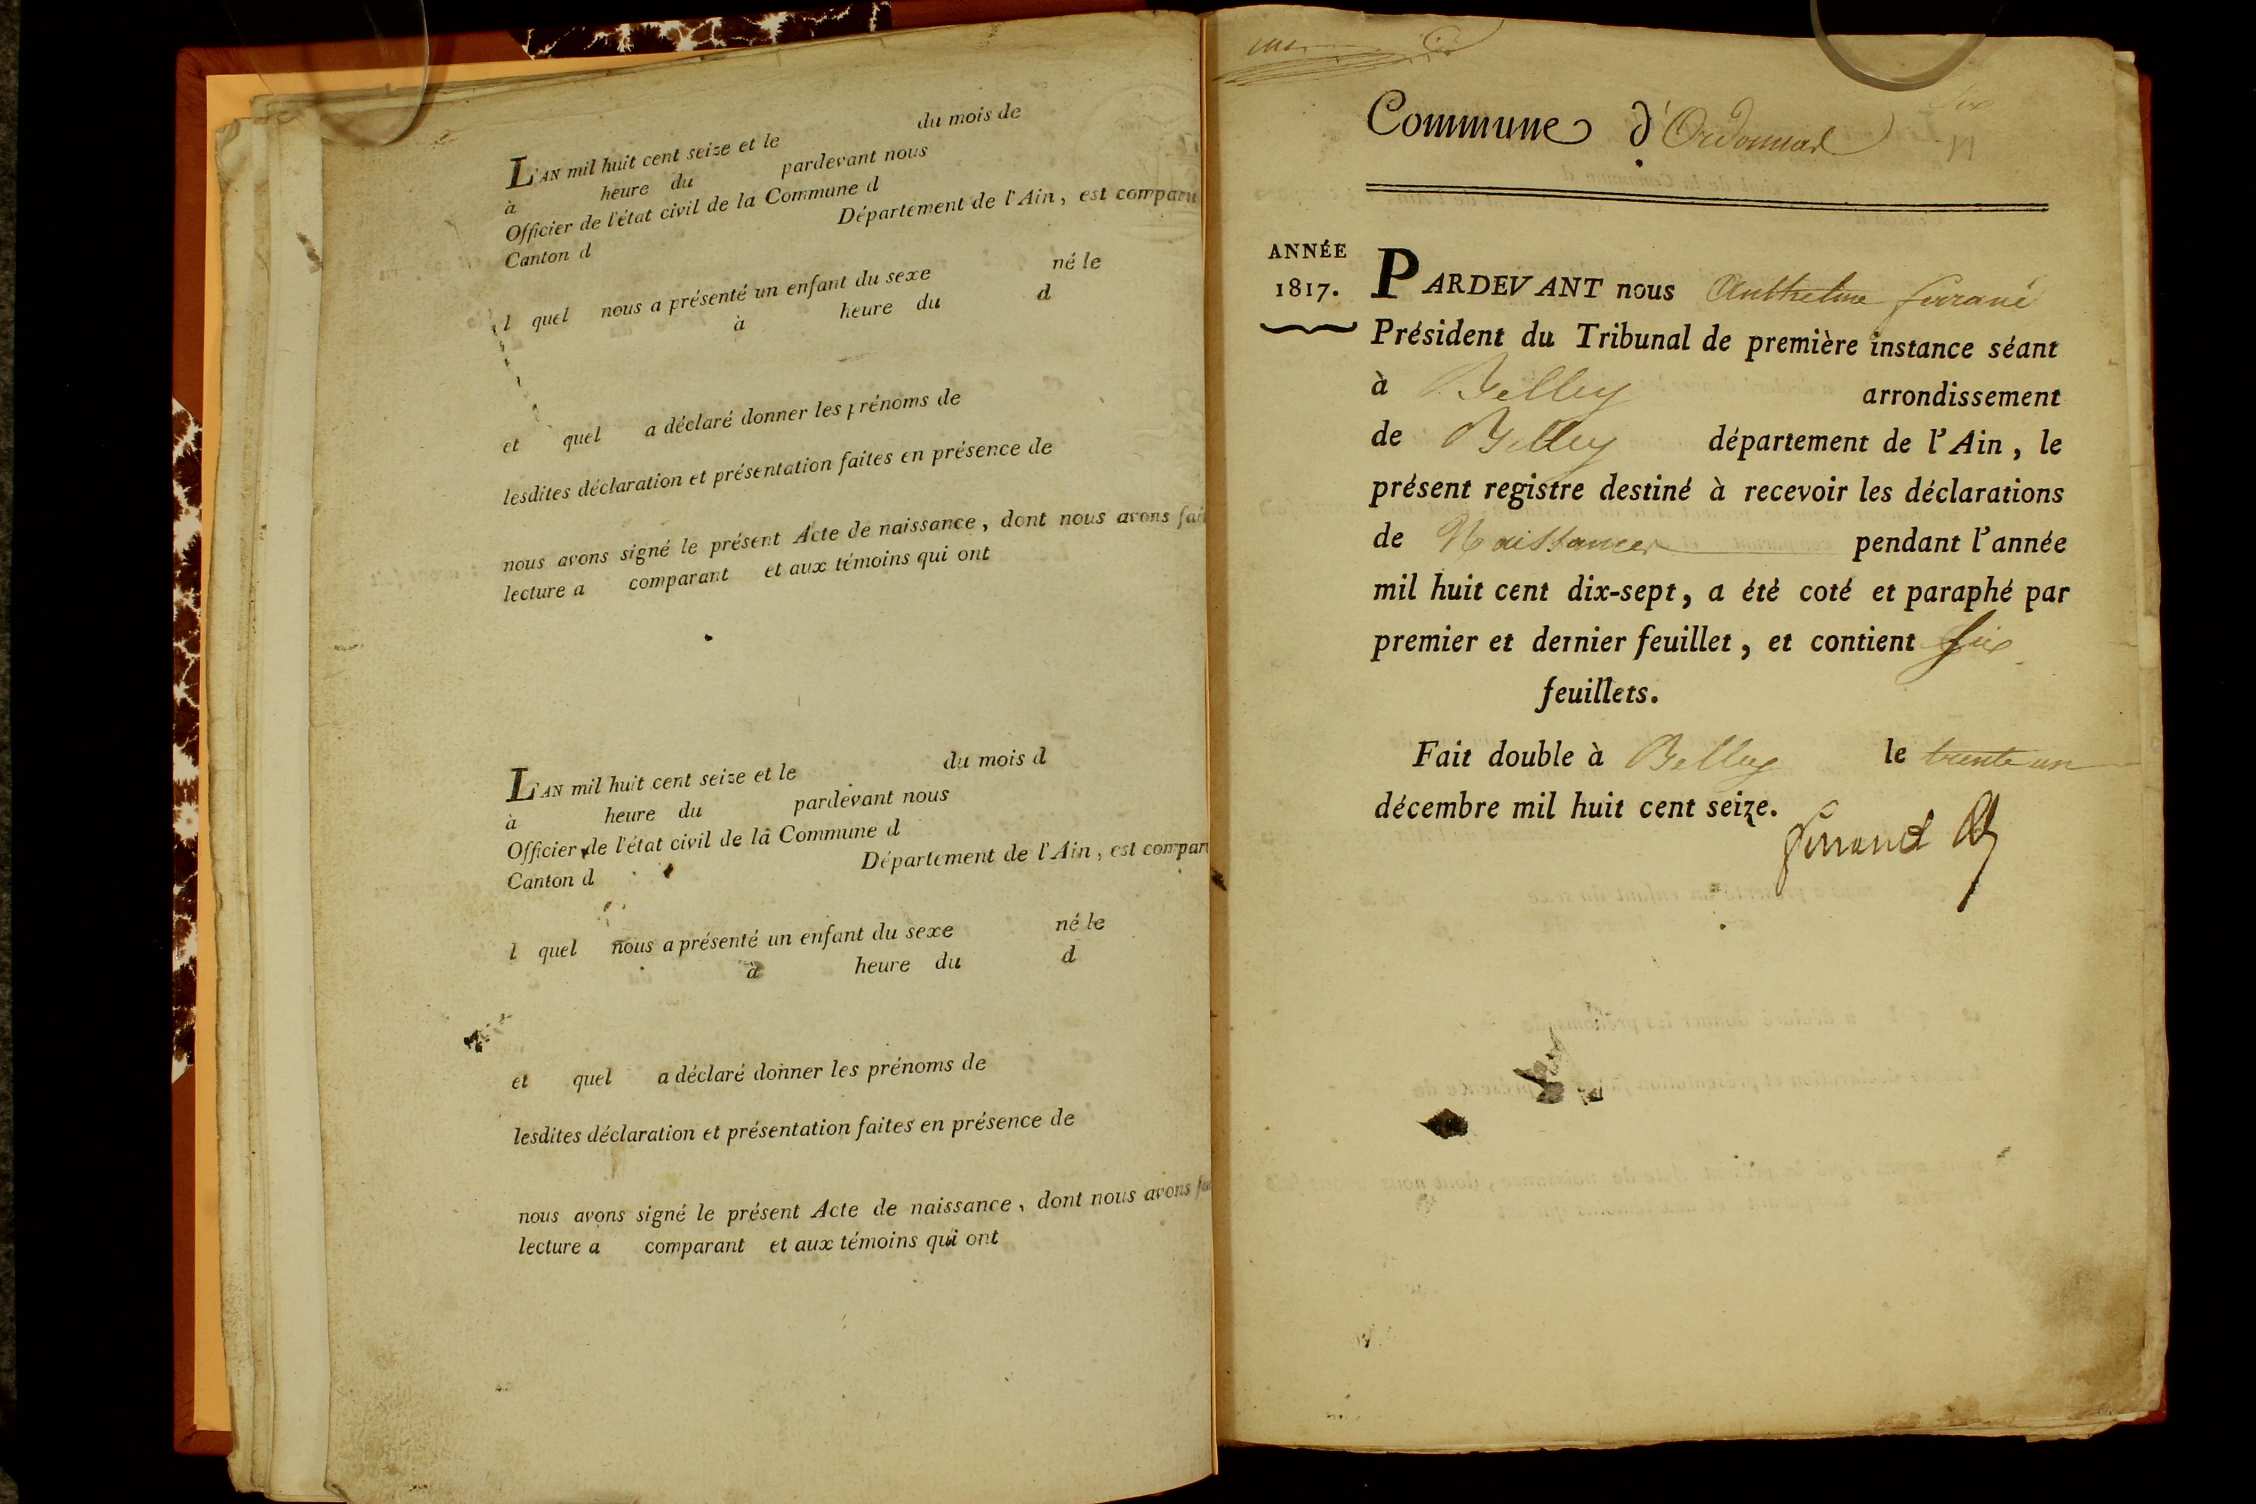 L'AN mil huit cent seize et le du mois de
à heure du pardevant nous
Officier de l'état civil de la Commune d
Canton d Département de l'Ain, est comparu
l quel nous a présenté un enfant du sexe né le
à heure du d
et quel a déclaré donner les prénoms de
lesdites déclaration et présentation faites en présence de
nous avons signé le présent Acte de naissance, dont nous avons fait
lecture a comparant et aux témoins qui ont
L'AN mil huit cent seize et le du mois d
à heure du pardevant nous
Officier de l'état civil de la Commune d
Canton d Département de l'Ain, est compar
l quel nous a présenté un enfant du sexe né le
à heure du d
et quel a déclaré donner les prénoms de
lesdites déclaration et présentation faites en présence de
nous avons signé le présent Acte de naissance, dont nous avons
lecture a comparant et aux témoins qui ont
Commune d'Ordonnal
ANNÉE
1817.
PARDEVANT nous Anthelme ferrand
Président du Tribunal de première instance séant
à Belley arrondissement
de Belley département de l'Ain, le
présent registre destiné à recevoir les déclarations
de Naissances pendant l'année
mil huit cent dix-sept, a été coté et paraphé par
premier et dernier feuillet, et contient six
feuillets.
Fait double à Belley le trente un
décembre mil huit cent seize.
ferrand